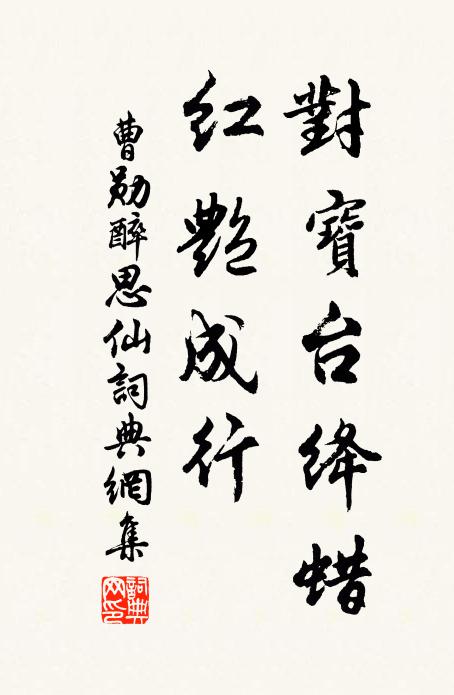 對寶台绛蜡
红艷成行
曹勋醉思仙詞典網集
詞典网印